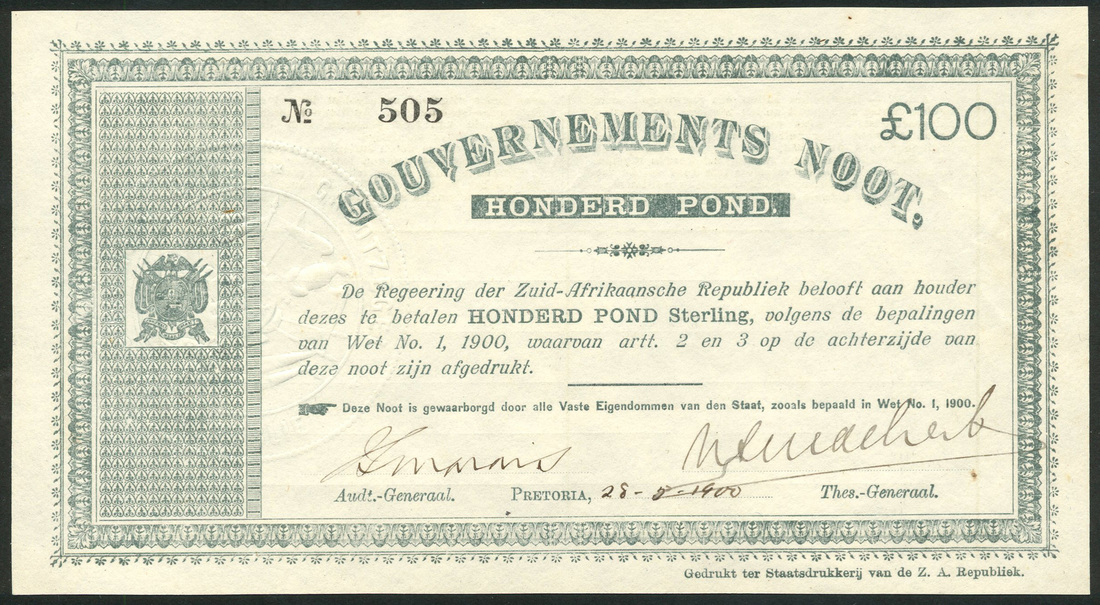 № 505
£100
GOUVERNEMENTS NOOT,
HONDERD POND.
De Regeering der Zuid-Afrikaansche Republiek belooft aan houder
dezes te betalen HONDERD POND Sterling, volgens de bepalingen
van Wet No. 1, 1900, waarvan artt. 2 en 3 op de achterzijde van
deze noot zijn afgedrukt.
Deze Noot is gewaarborgd door alle Vaste Eigendommen van den Staat, zooals bepaald in Wet No. 1, 1900.
Audt.-Generaal. PRETORIA, 28-5-1900 Thes.-Generaal.
Gedrukt ter Staatsdrukkerij van de Z. A. Republiek.